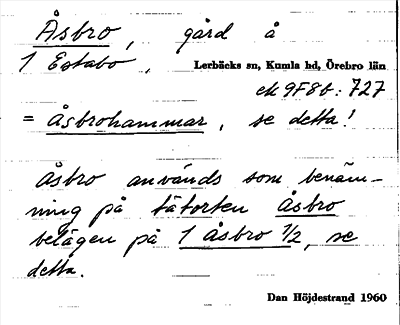 Åsbro, gård å
1 Estabo, Lerbäcks sn, Kumla hd, Örebro län
ek 9F8b: 727
= Åsbrohammar, se detta!
Åsbro används som benäm-
ning på tätorten Åsbro
belägen på 1 Åsbro 1/2, se
detta.
Dan Höjdestrand 1960